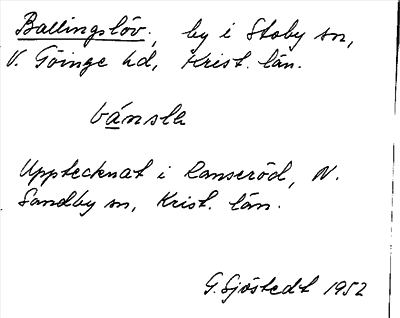 Ballingslöv, by i Stoby sn,
V. Göinge hd, Krist. län.
bánslə
Upptecknat i Ranseröd, N.
Sandby sn, Krist. län.
G. Sjöstedt 1952